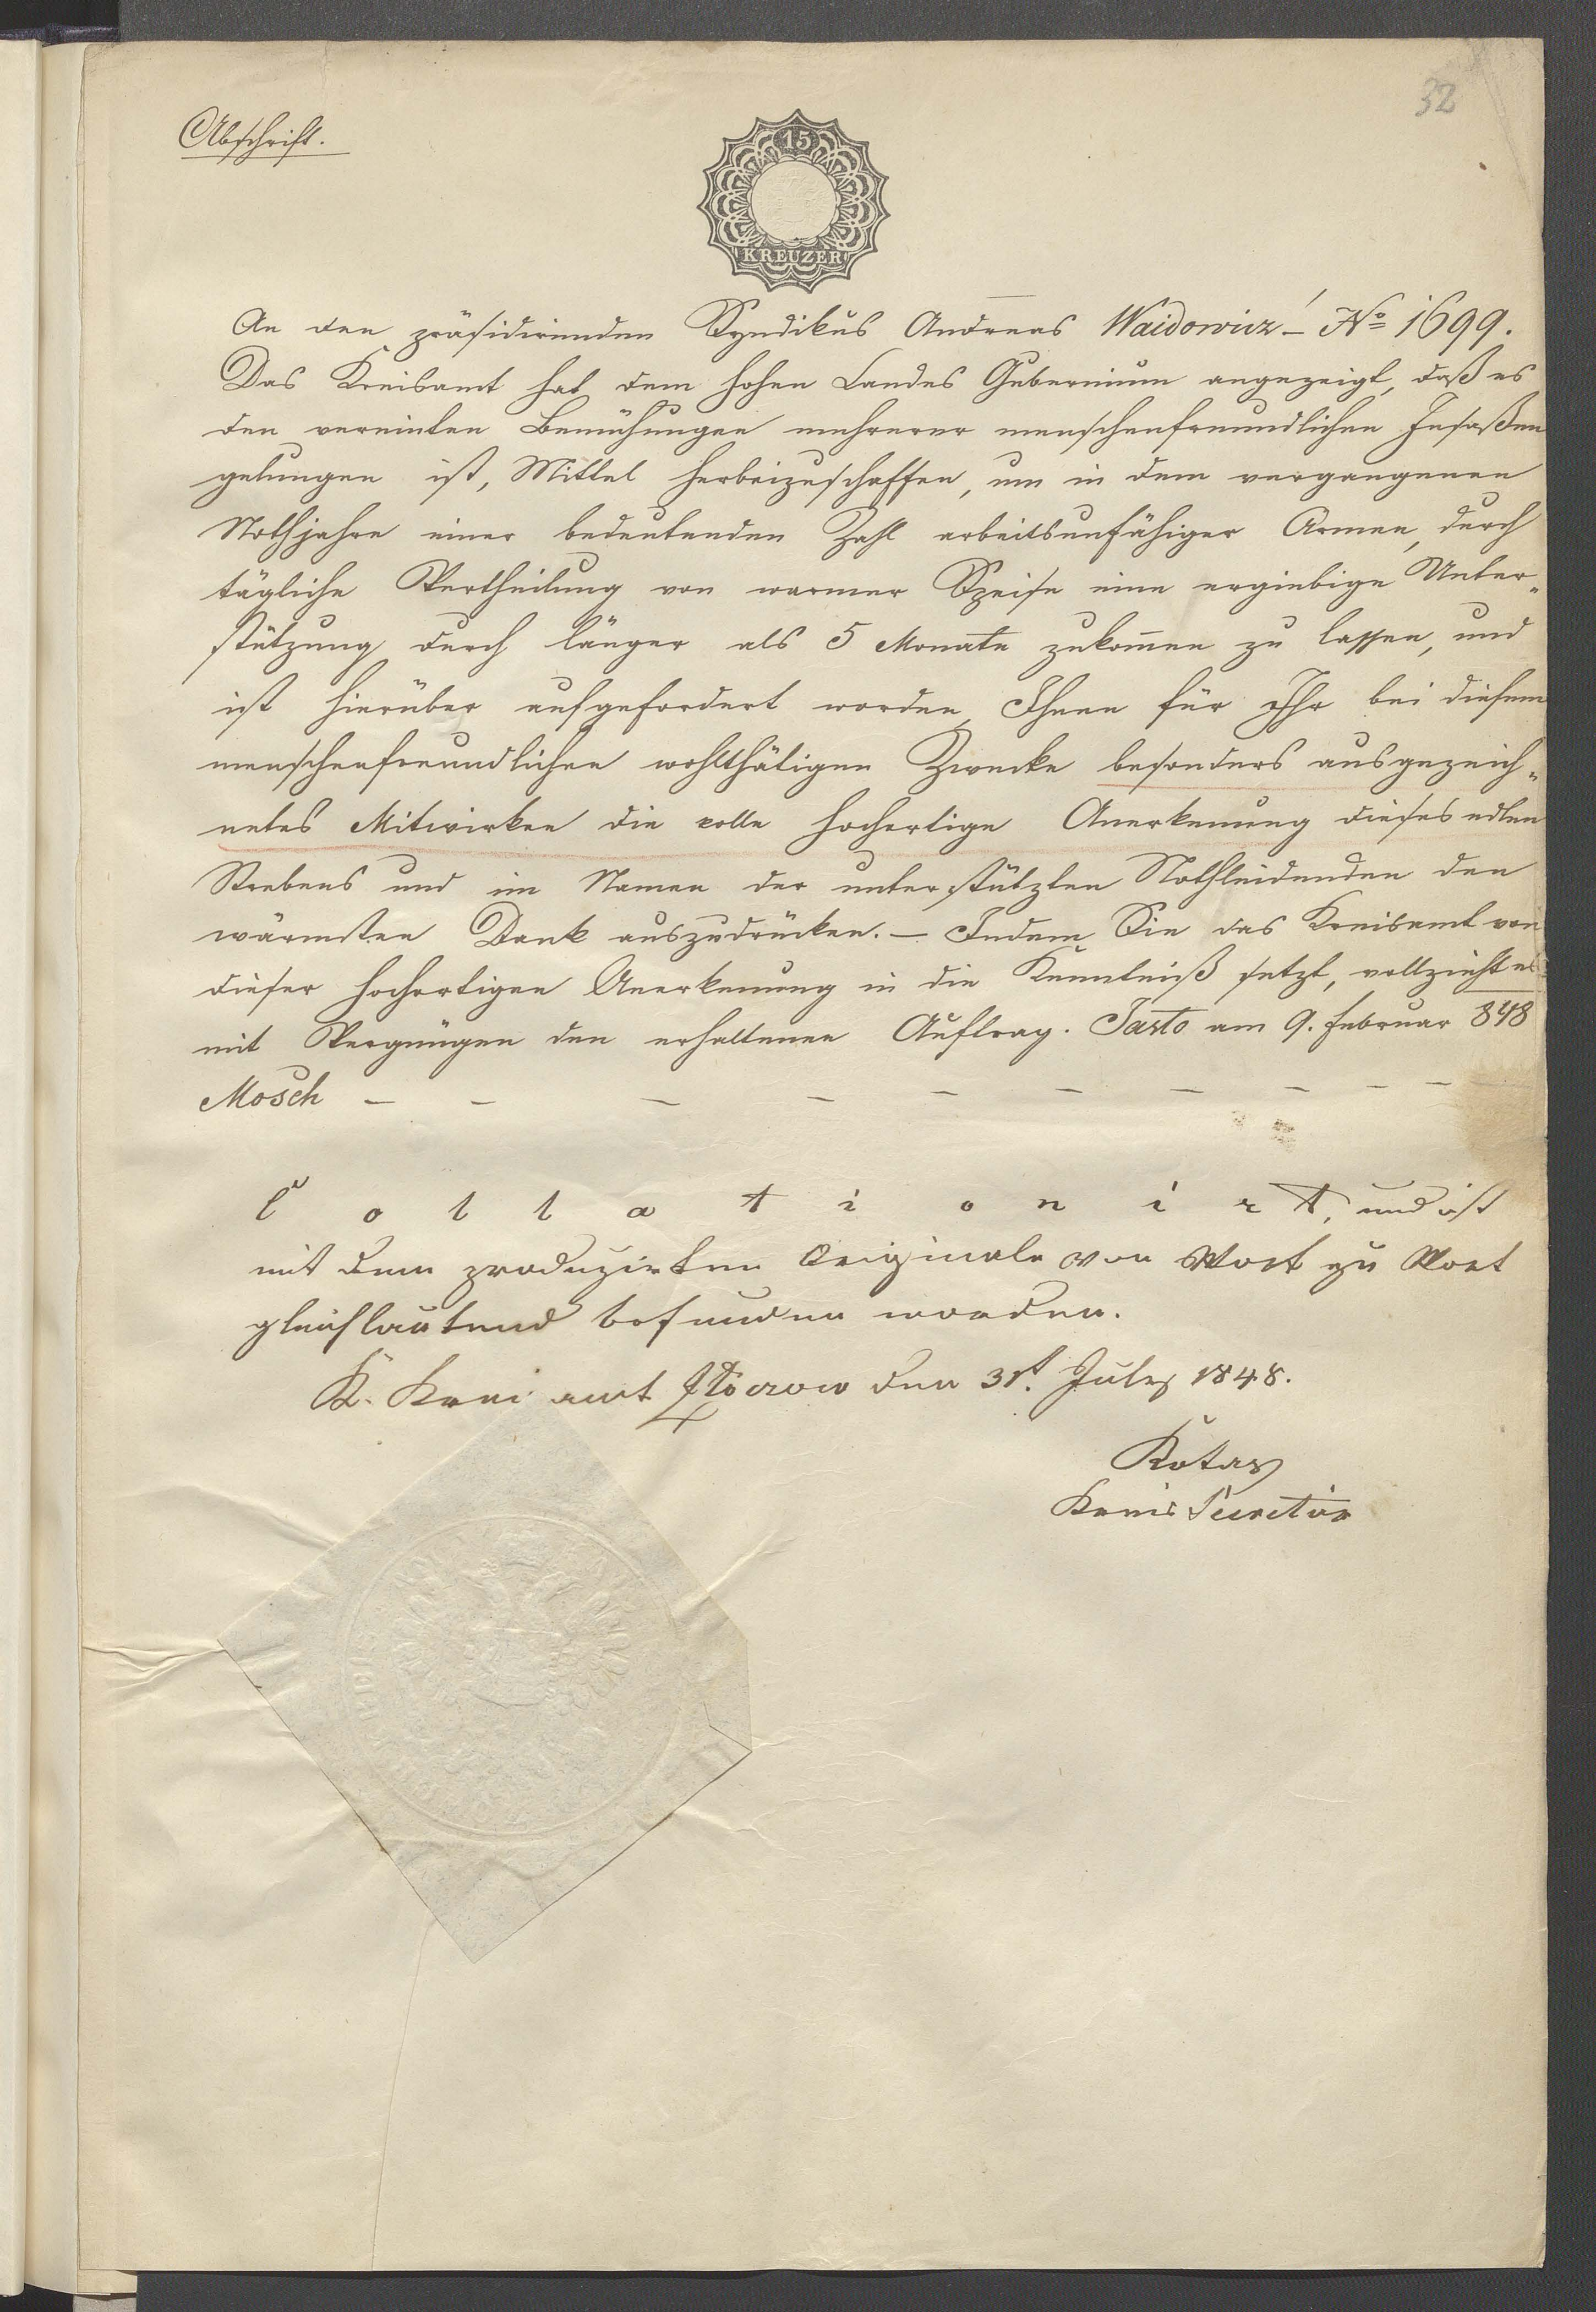 32
Abschrift.
15
KREUZER
An den präsidirenden Syndikus Andreas Waidowicz – No 1699.
Das Kreisamt hat dem hohen Landes Gubernium angezeigt, daß es
den vereinten Bemühungen mehrerer menschenfreundlichen Insaßen
gelungen ist, Mittel herbeizuschaffen, um in dem vergangenen
Nothjahre einer bedeutenden Zahl arbeitsunfähiger Armen, durch
tägliche Vertheilung von warmer Speise eine ergiebige Unter„
stützung durch länger als 5 Monate zukom̅en zu lassen, und
ist hierüber aufgefordert worden, Ihnen für Ihr bei diesem
menschenfreundlichen wohlthätigen Zwecke besonders ausgezeich„
netes Mitwirken die volle hochortige Anerkennung dieses edlen
Strebens und im Namen der unterstützten Nothleidenden den
wärmsten Dank auszudrücken. – Indem Sie das Kreisamt von
dieser hochortigen Anerkennung in die Kenntniß setzt, vollzieht es
mit Vergnügen den erhaltenen Auftrag. Jasło am 9. Februar 848
Mosch – – – – – – – – – –
Collationirt, und ist
mit dem produzirten Originale von Wort zu Wort
gleichlautend befunden worden.
K. Kreisamt Złoczow den 31t. July 1848.
Kotas
Kreis Secretär